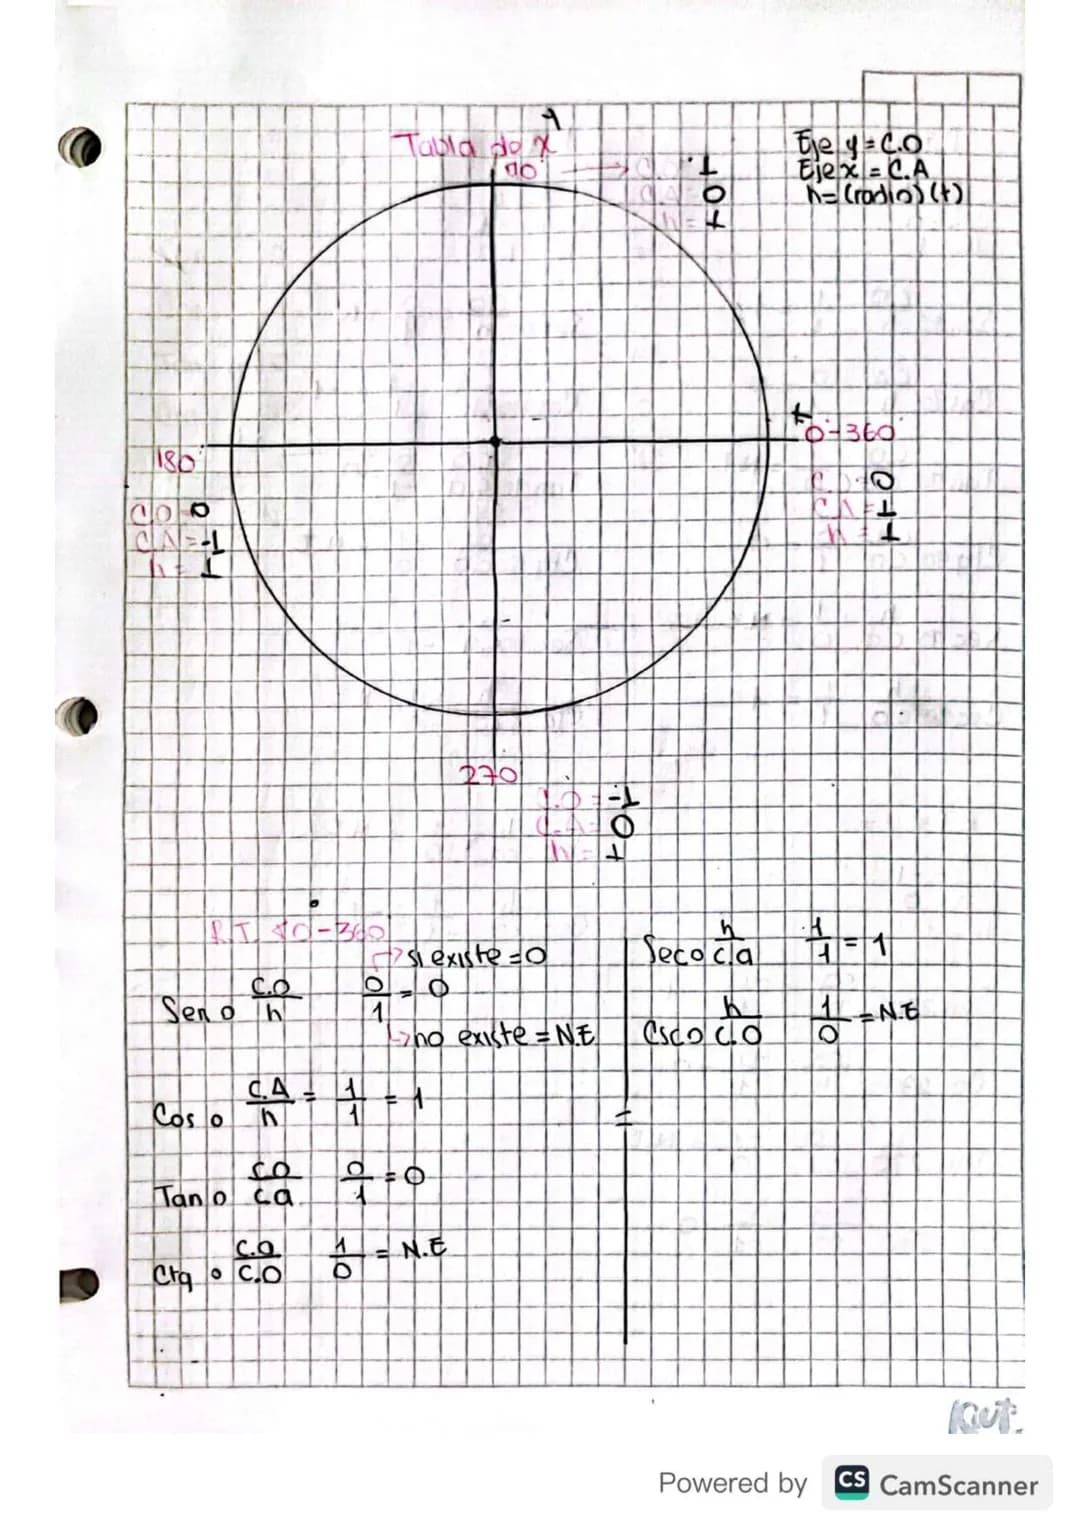 Tabla de x
Y
90°
C.O = 1
C.A = 0
h = 1
Eje y = C.O
Eje x = C.A
h = (radio) (+)
x
0°-360°
C.O = 0
C.A = 1
h = 1
180°
C.O = 0
C.A = -1
h = 1
270°
C.O = -1
C.A = 0
h = 1
R.T. 0-360
si existe = 0
Sen o C.O/h 0/1 = 0
no existe = N.E
Cos o C.A/h = 1/1 = 1
Tan o CO/ca 0/1 = 0
Ctg o C.a/C.O 1/0 = N.E
Sec o h/c.a 1/1 = 1
Csc o h/C.O 1/0 = N.E
=
Powered by CS CamScanner